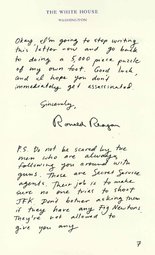 THE WHITE HOUSE
WASHINGTON
Okay I'm going to stop writing
this letter now and go back
to doing a 5,000 piece puzzle
of my own foot. Good luck,
and I hope you don't
immediately get assassinated
Sincerely,
Ronald Reagan
P.S. Do not be scared by the
men who are always
following you around with
guns. Those are Secret Service
agents. Their job is to make
sure no one tries to shoot
JFK Don't bother asking them
if they have any Fig Newtons
They're not allowed to
give you any
7